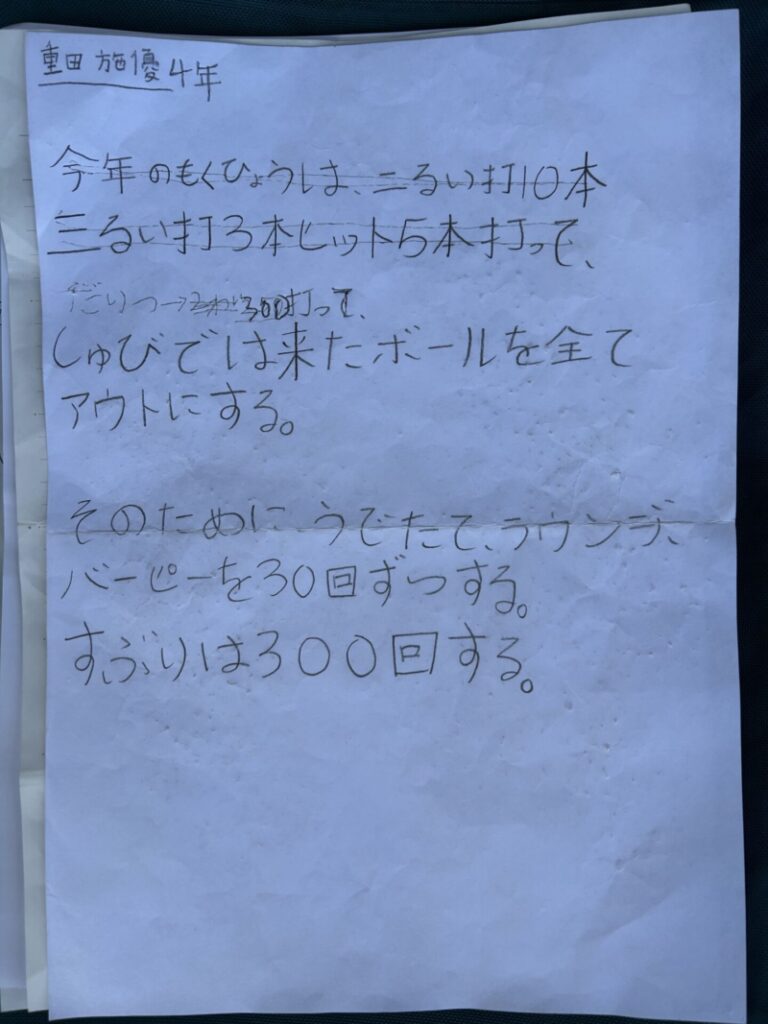 重田 施優 4年
今年のもくひょうは、二るい打10本
三るい打3本ヒット5本打って、
だりつ→ 300打って、
しゅびでは来たボールを全て
アウトにする。
そのために、うでたて、ラウンジ、
バーピーを30回ずつする。
すぶりは300回する。